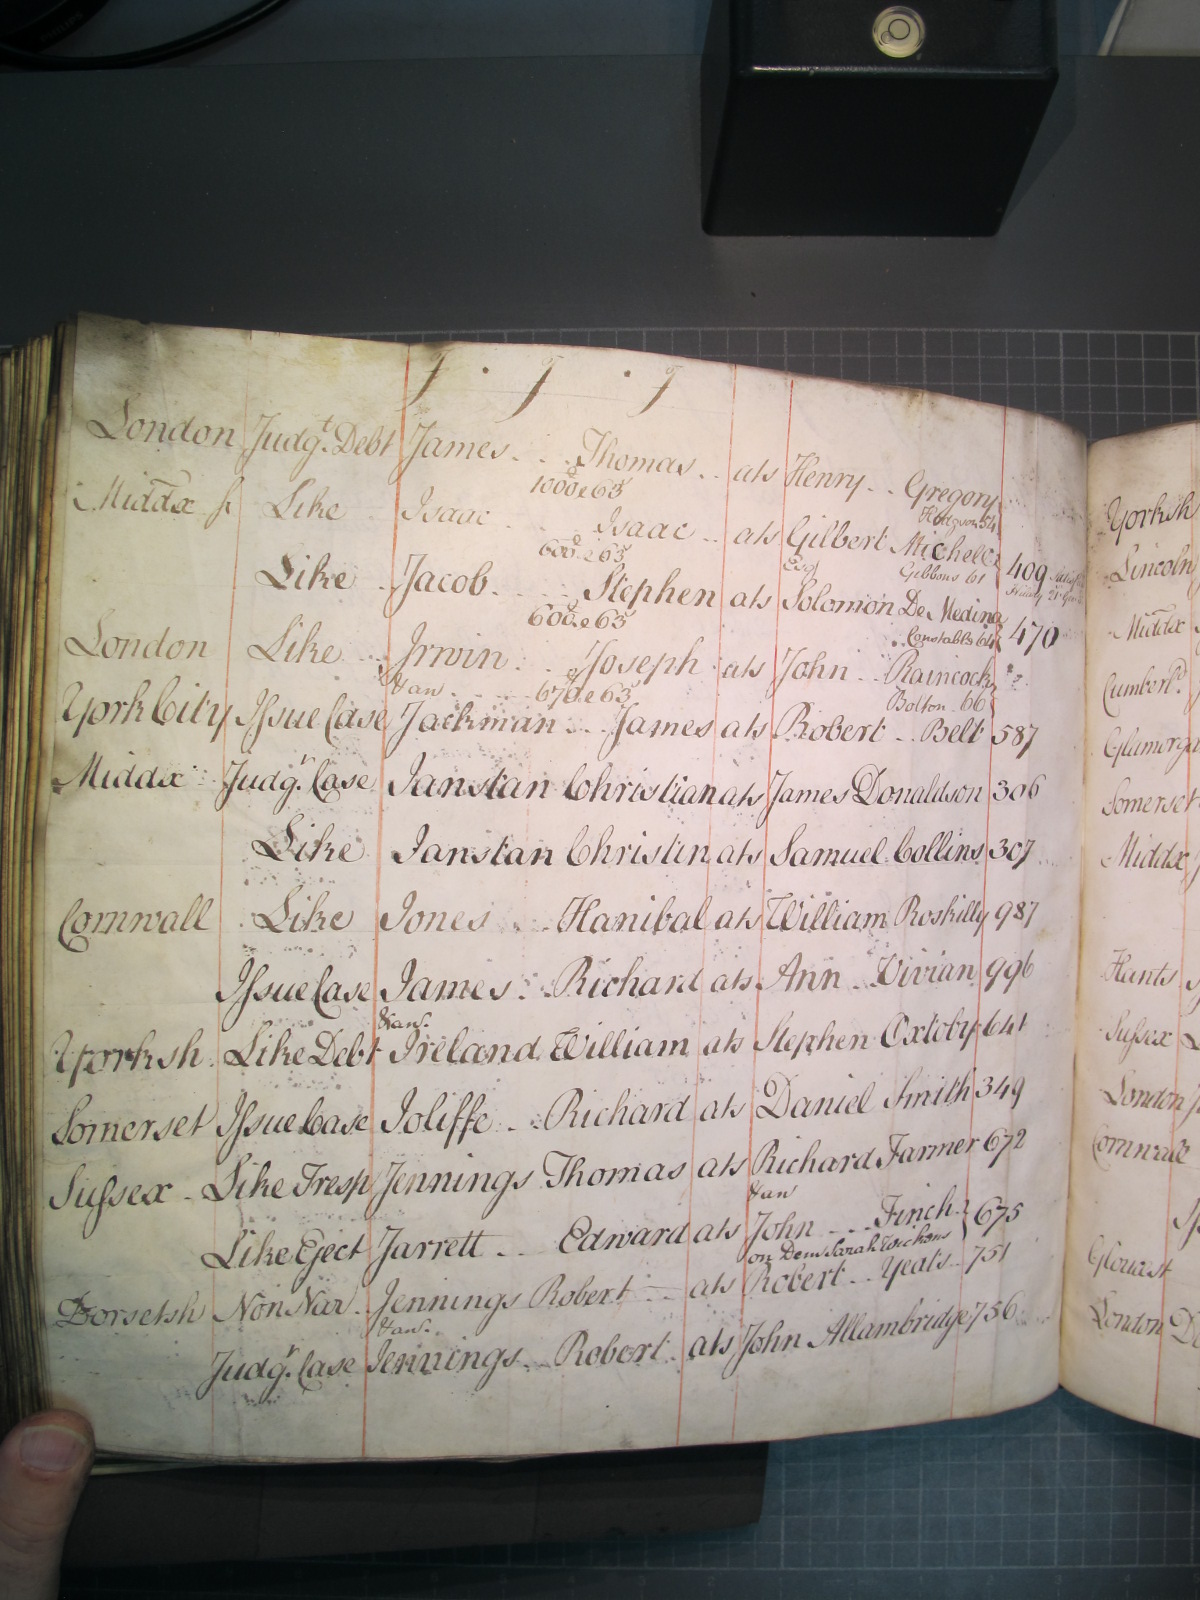 J . J . J
London Judgt. Debt James . . Thomas . . ats Henry . . Gregory
1000 e 63 Hodgson 54
Middx Like Isaac . . Isaac . . ats Gilbert Michell
600 e 63 Esq Gibbons 61 409
Like Jacob . . . Stephen ats Solomon De Medina
600 e 63 Constable 64 470
London Like Irwin . . Joseph ats John . . Raincock
& an. . . . 670 e 63 Bolton . 66
York City Issue Case Jackman . . James ats Robert . . Belt 587
Middx Judgt. Case Janstan Christian ats James Donaldson 306
Like Janstan Christin ats Samuel Collins 307
Cornwall Like Jones . . Hanibal ats William Roskilly 987
Issue Case James . . Richard ats Ann . . Vivian 996
& an.
Yorksh. Like Debt Ireland William ats Stephen Oxtoby 641
Somerset Issue Case Joliffe . . Richard ats Daniel Smith 349
Sussex . Like Tresp Jennings Thomas ats Richard Farmer 672
& an
Like Eject Jarrett . . Edward ats John . . . Finch 675
on Dem Sarah
Dorsetsh Non Nar . Jennings Robert ats Robert . . Yeats . . 751
& an.
Judgt. Case Jennings . . Robert . ats John Allambridge 756
Yorksh
Lincoln
Middx
Cumberld
Glamorga
Somerset
Middx
Hants
Sussex
London
Cornwall
Gloucest
London